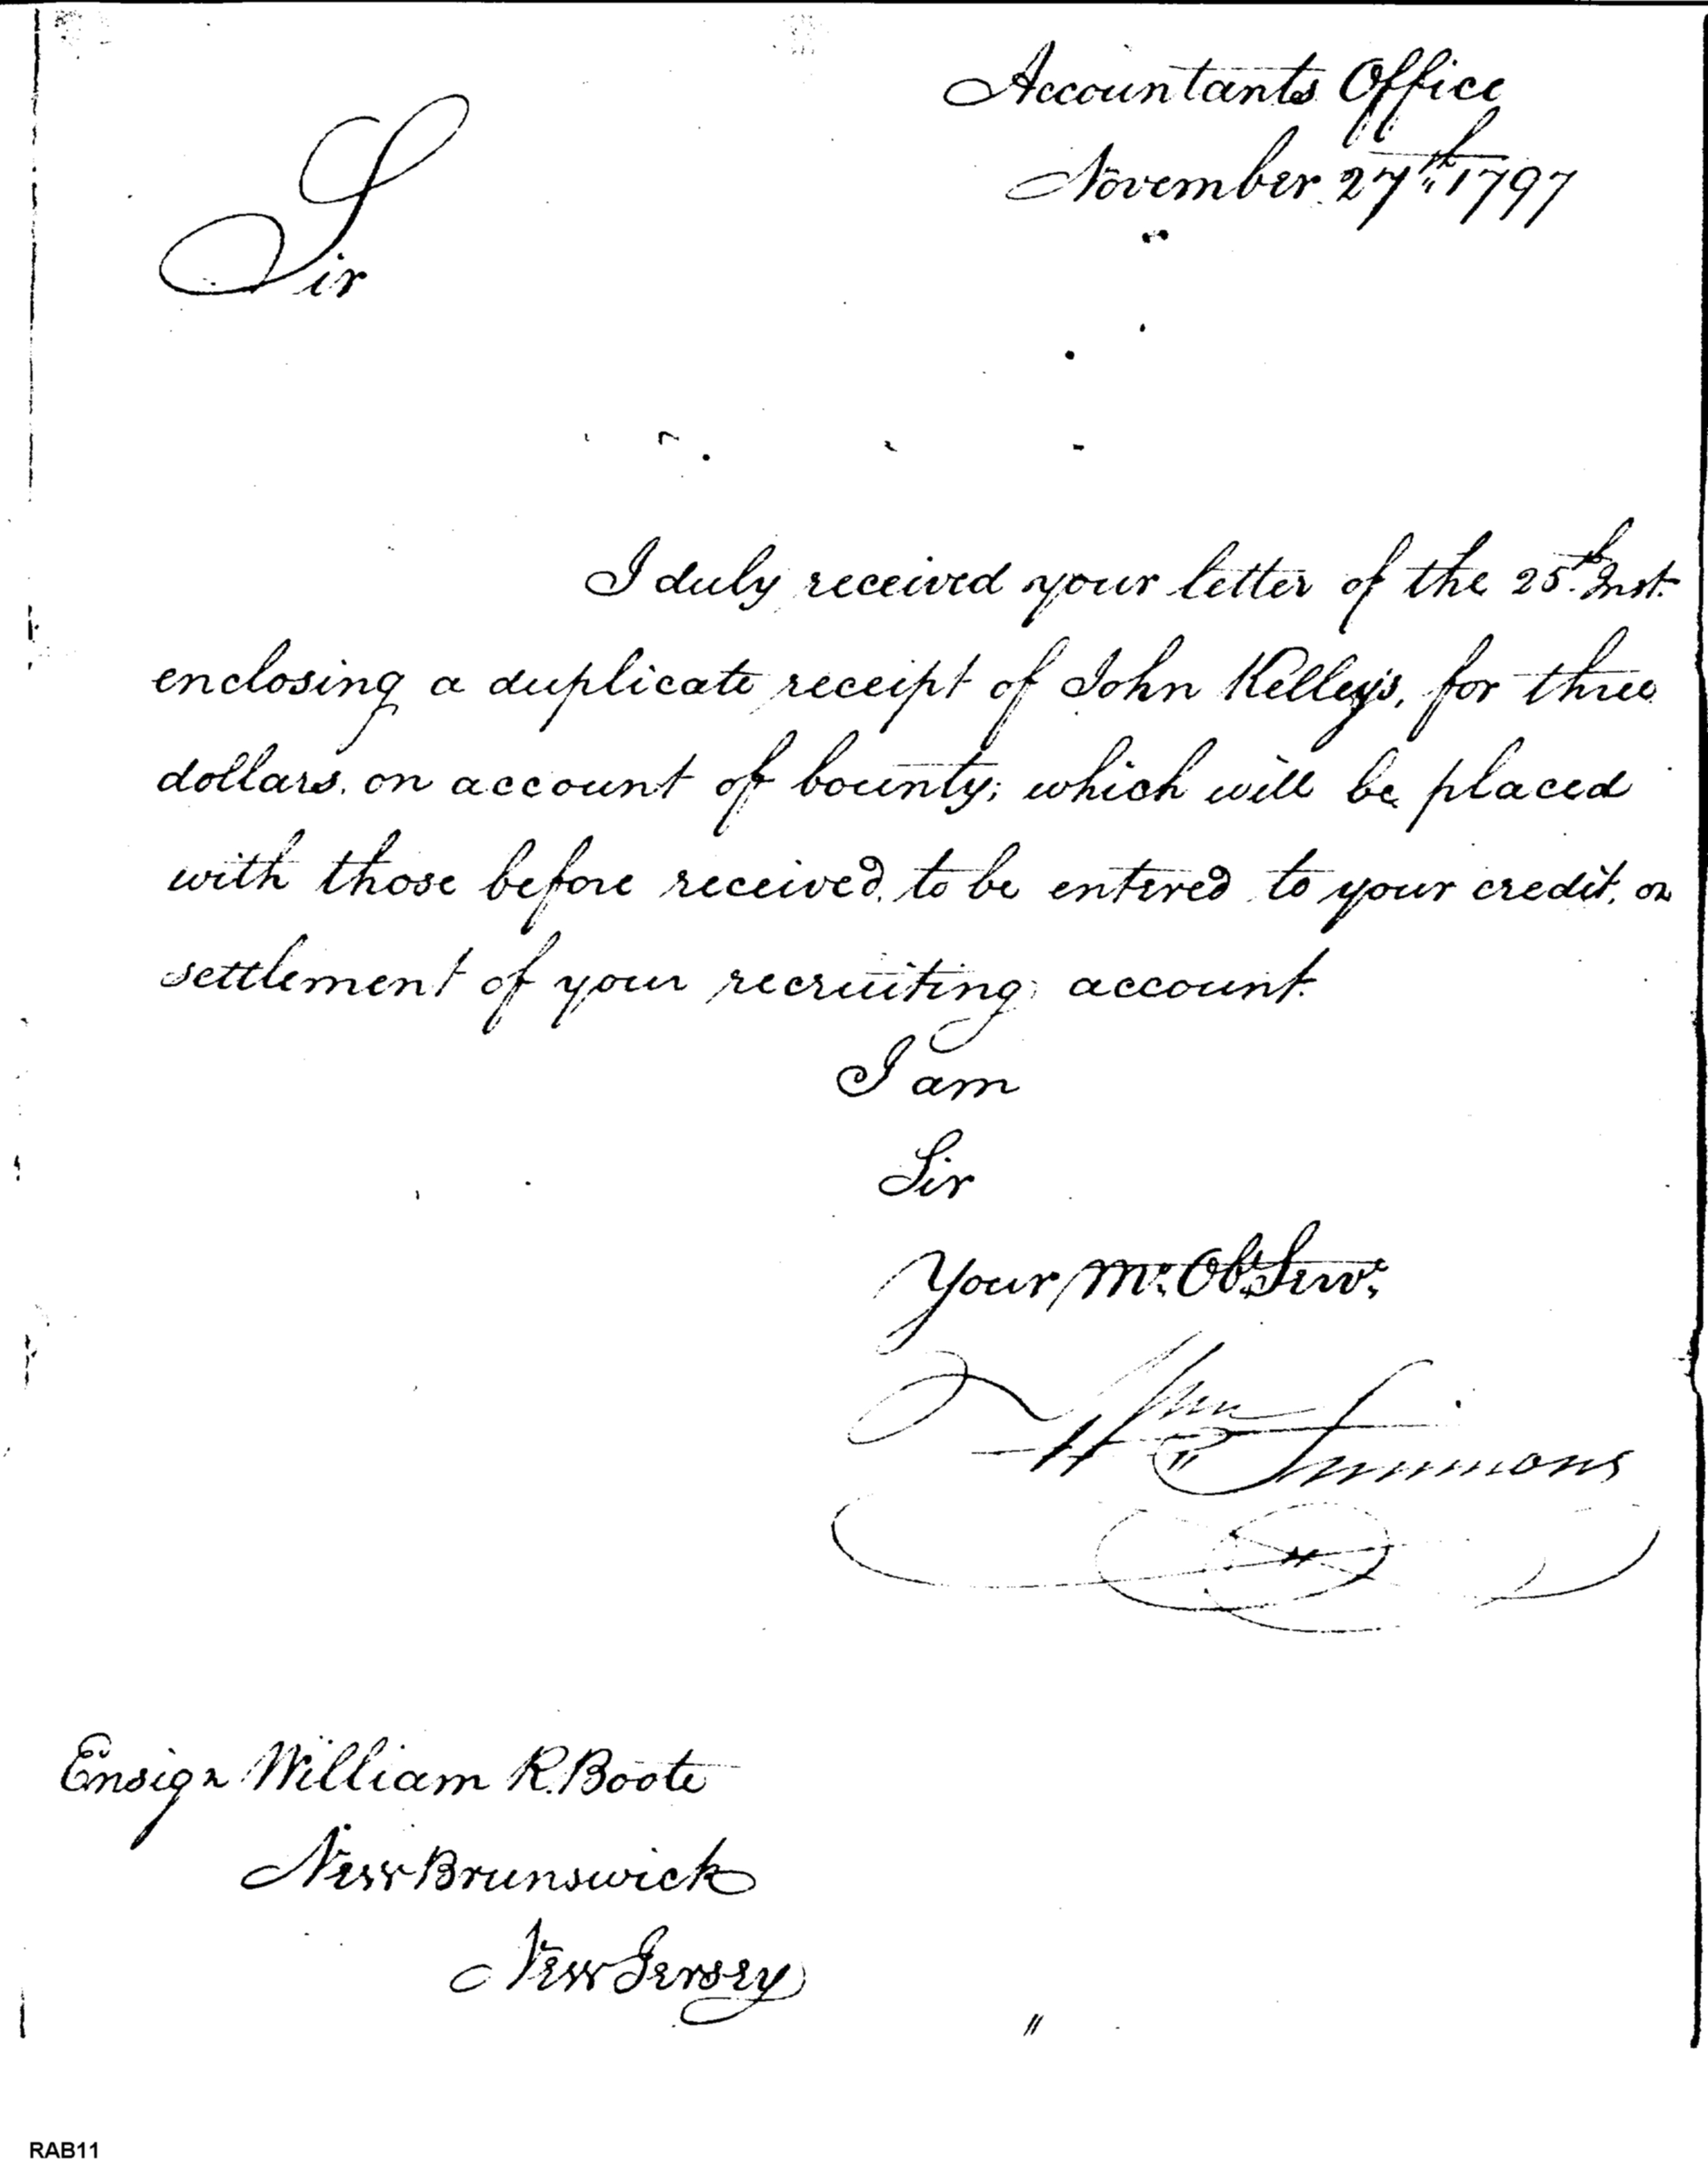 Accountants Office
November 27th 1797
Sir
I duly received your letter of the 25th Inst.
enclosing a duplicate receipt of John Kelley's, for three
dollars. on account of bounty; which will be placed
with those before received, to be entered to your credit, on
settlement of your recruiting account.
I am
Sir
Your Mo. Obt. Servt.
Wm Simmons
Ensign William R. Boote
New Brunswick
New Jersey
RAB11